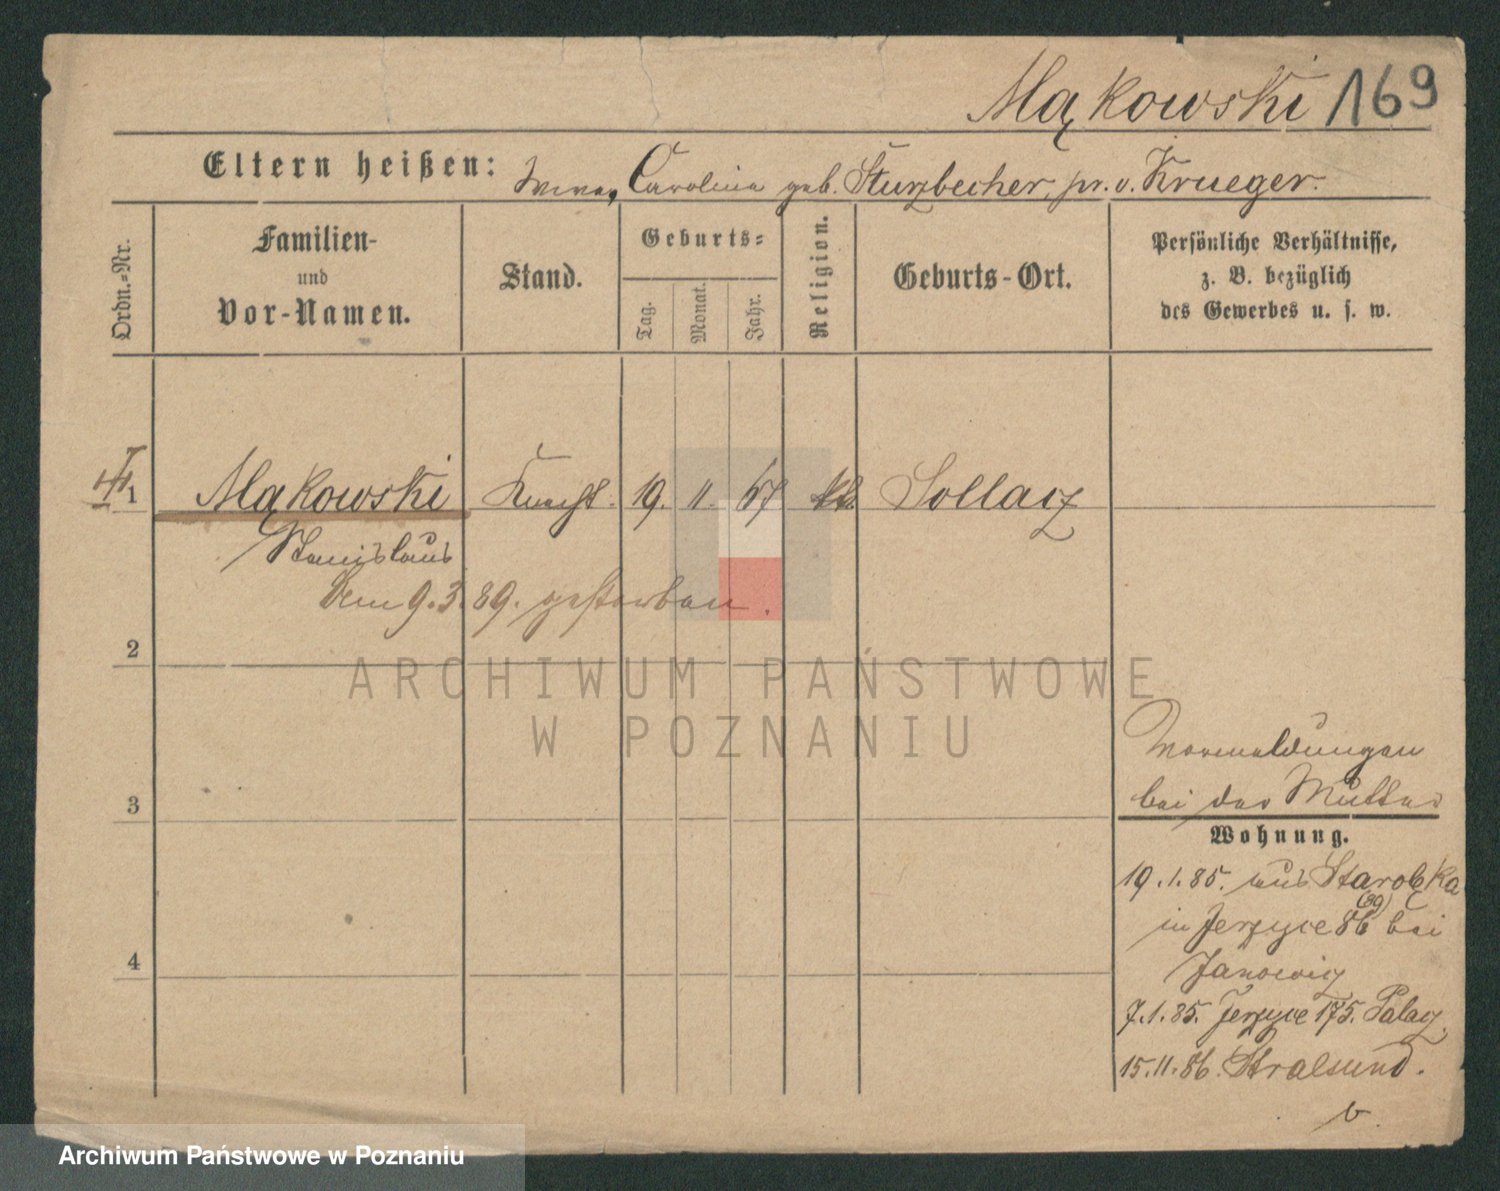 Mąkowski 169
Eltern heißen: Carolina geb. Sturzbecher, pr. v. Krueger.
Ordn.-Nr.
Familien-
und
Vor-Namen.
Stand.
Geburts-
Tag.
Monat.
Jahr.
Religion.
Geburts-Ort.
Persönliche Verhältnisse,
z. B. bezüglich
des Gewerbes u. s. w.
1 Mąkowski Knecht. 19. 11. 67 kth. Sollacz
Stanislaus
Am 9.3.89. gestorben.
2
ARCHIWUM PAŃSTWOWE
W POZNANIU
3
4
bei der Mutter
Wohnung.
19.1.85. aus Starolęka
(89)
in Jerzyce 86 bei
Janowicz
7.1.85. Jerzyce 175. Palacz.
15.11.86. Stralsund.
Archiwum Państwowe w Poznaniu